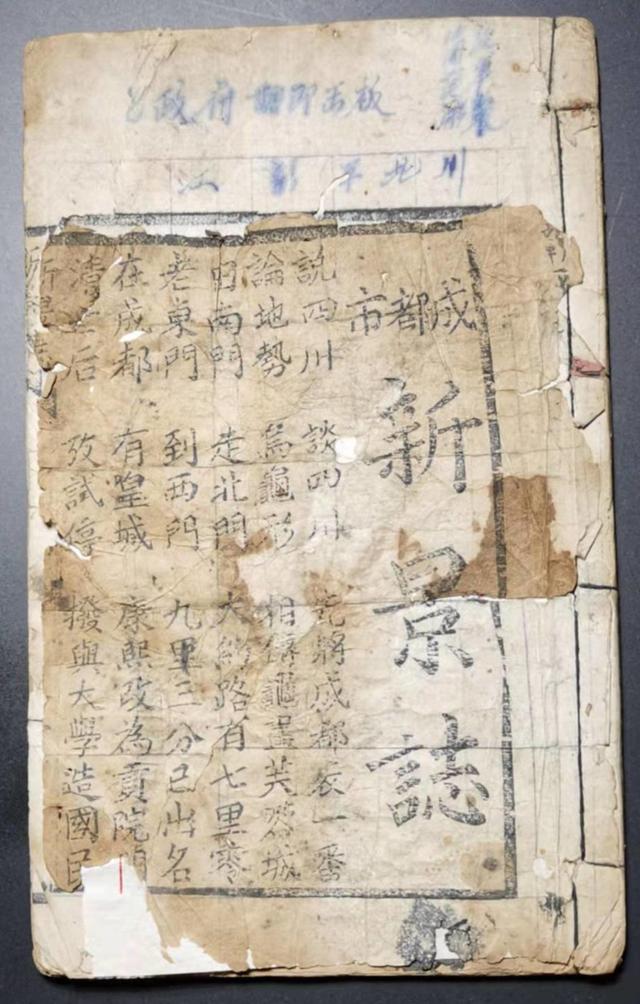 政府
成都市
新景誌
說四川 談四川 先將成都表一番
論地勢 為龜形 相傳龜畫芙蓉城
南門 走北門 大約路有七里零
老東門 到西門 九里三分已出名
在成都 有皇城 康熙改為貢院
清后 攷試停 撥與大學造國民